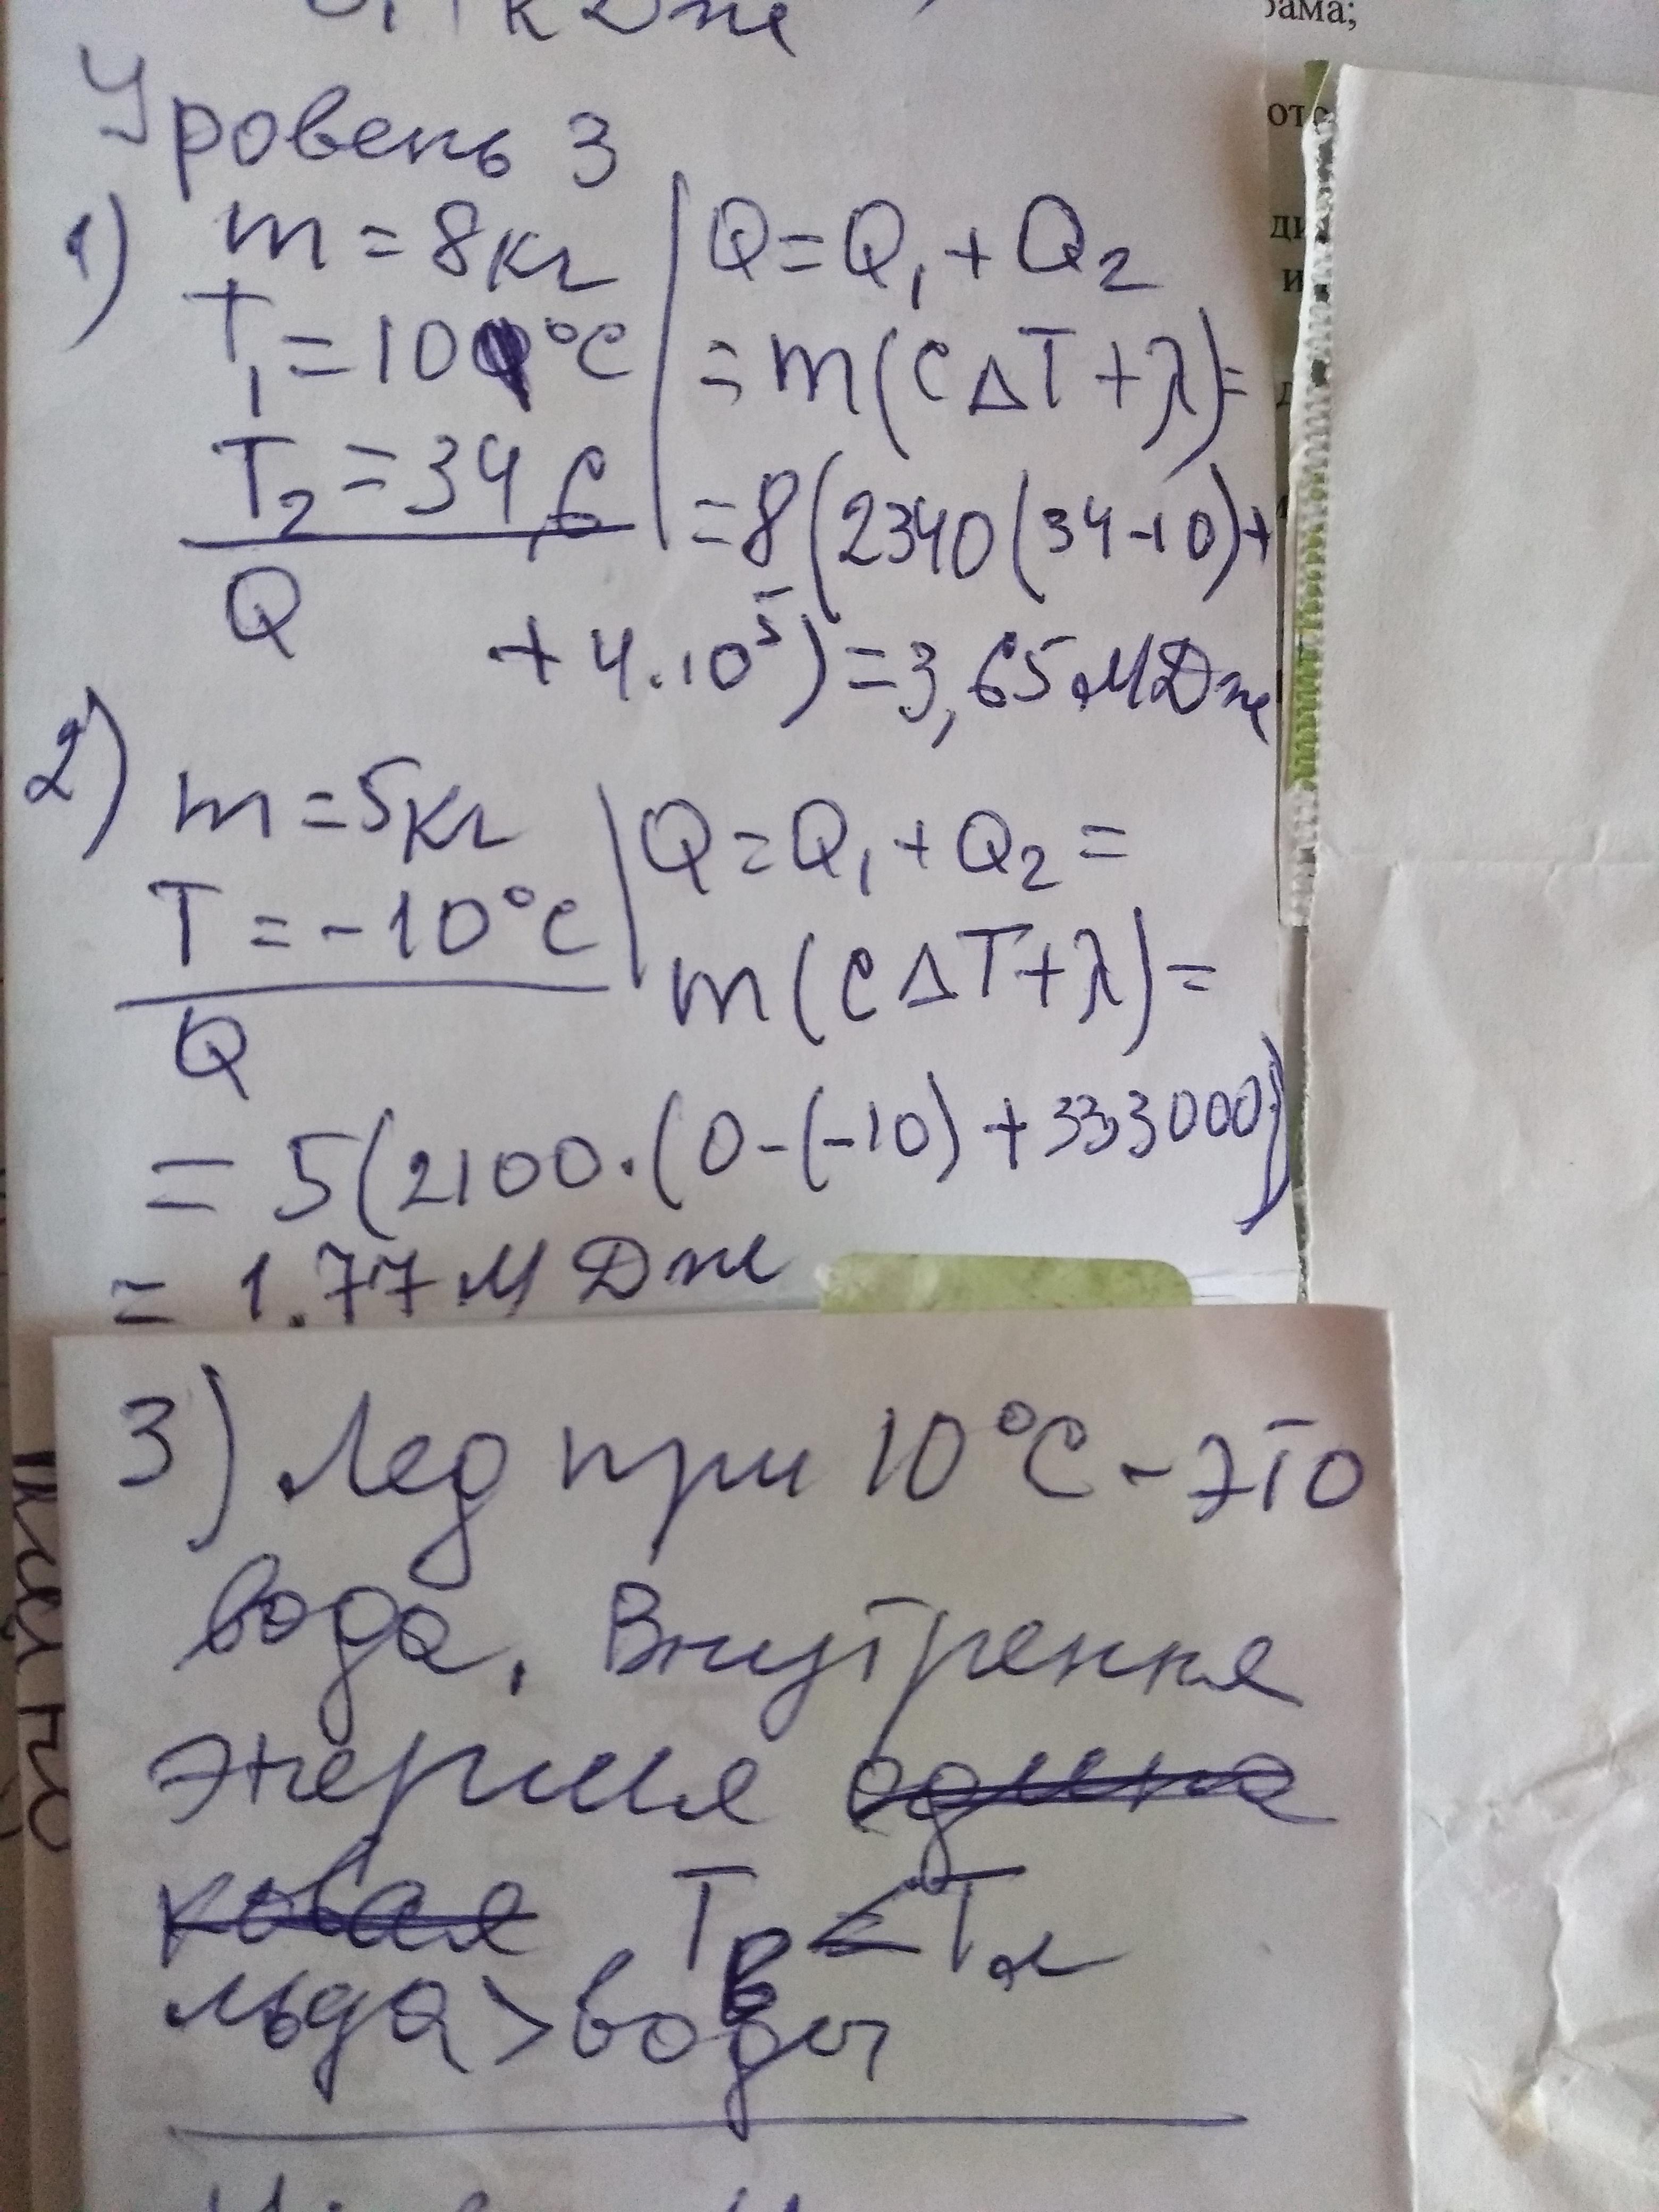 кДж
рама;
Уровень 3
1) m = 8кг
T₁ = 10 °C
T₂ = 34,6
Q
Q = Q₁ + Q₂
= m(cΔT + λ) =
= 8(2340(34-10)+
+ 4.10⁵) = 3,65 МДж
2) m = 5кг
T = -10°C
Q
Q = Q₁ + Q₂ =
m(cΔT+λ) =
= 5(2100.(0-(-10)+333000)
= 1.77 МДж
3) Лед при 10°C - это
вода. Внутрення
энергия едина
ковая Tв < Tл
льда > воды